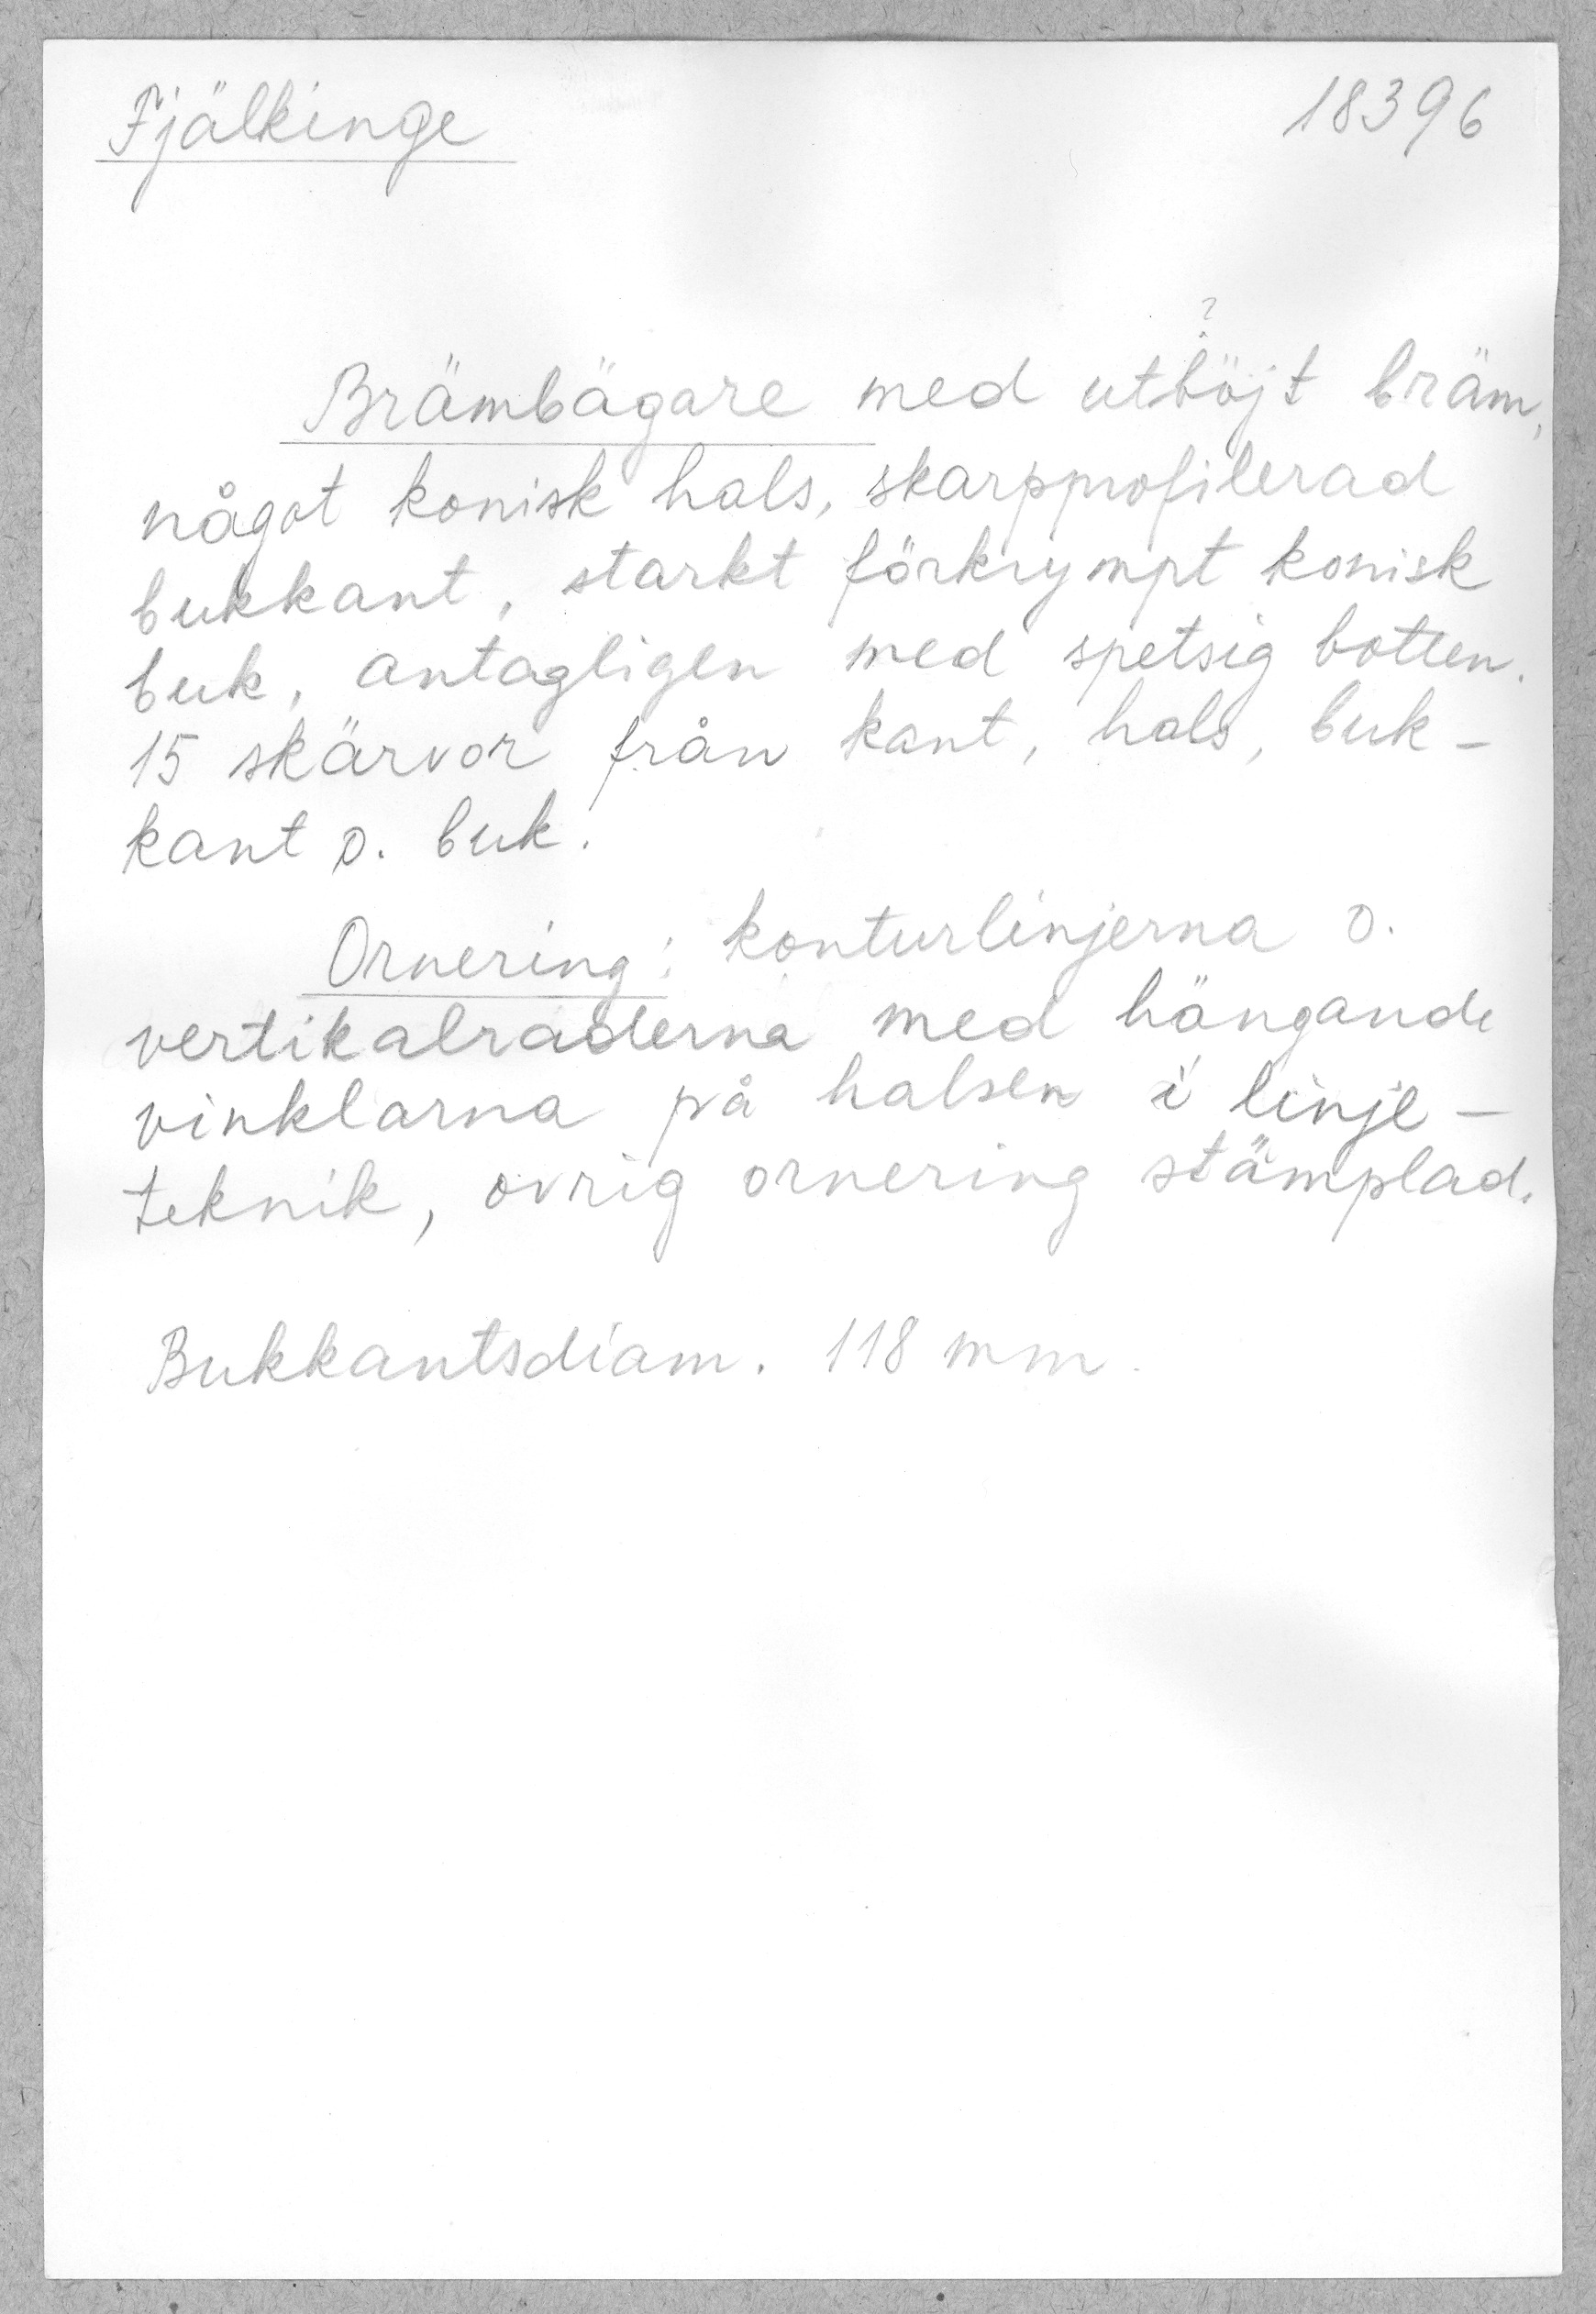 Fjälkinge 18396
?
Brämbägare med utböjt bräm,
något konisk hals, skarpprofilerad
bukkant, starkt förkrympt konisk
buk, antagligen med spetsig botten.
15 skärvor från kant, hals, buk-
kant o. buk.
Ornering: konturlinjerna o.
vertikalraderna med hängande
vinklarna på halsen i linje-
teknik, övrig ornering stämplad.
Bukkantsdiam. 118 mm.